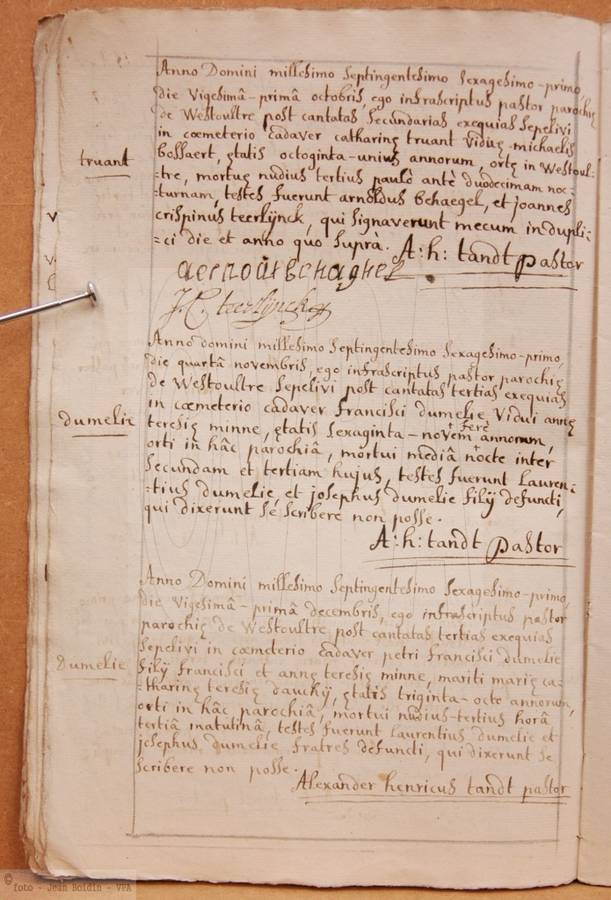 Anno Domini millesimo septingentesimo sexagesimo-primo
die vigesimâ-primâ octobris, ego infrascriptus pastor parochię
de Westoultre post cantatas secundarias exequias sepelivi
in cœmeterio cadaver catharinę truant viduę michaelis
truant
bossaert, ętatis octoginta-unius annorum, ortę in Westoul-
=tre, mortuę nudius tertius paulò antè duodecimam noc=
turnam, testes fuerunt arnoldus behaegel, et joannes
crispinus teerlÿnck, qui signaverunt mecum in dupli=
=ci die et anno quo suprà. A:h: tandt pastor
aernoút behaghel
J.C. teerlÿnck
Anno domini millesimo septingentesimo sexagesimo-primo,
die quartâ novembris, ego infrascriptus pastor parochię
de Westoultre sepelivi post cantatas tertias exequias
in cœmeterio cadaver francisci dumelie vidui annę
dumelie
teresię minne, ętatis sexaginta-novem ferè annorum,
orti in hâc parochiâ, mortui mediâ nocte inter
secundam et tertiam hujus, testes fuerunt lauren=
=tius dumelie, et josephus dumelie filÿ defuncti,
qui dixerunt se scribere non posse.
A:h: tandt pastor
Anno Domini millesimo septingentesimo sexagesimo-primo,
die vigesimâ-primâ decembris, ego infrascriptus pastor
parochię de Westoultre post cantatas tertias exequias
sepelivi in cœmeterio cadaver petri francisci dumelie
dumelie
filÿ francisci et annę teresię minne, mariti marię ca=
=tharinę teresię dauchÿ, ętatis triginta-octo annorum,
orti in hâc parochiâ, mortui nudius-tertius horâ
tertiâ matutinâ, testes fuerunt laurentius dumelie et
josephus dumelie fratres defuncti, qui dixerunt se
scribere non posse.
Alexander henricus tandt pastor
© foto - Jean Boidin - VPA